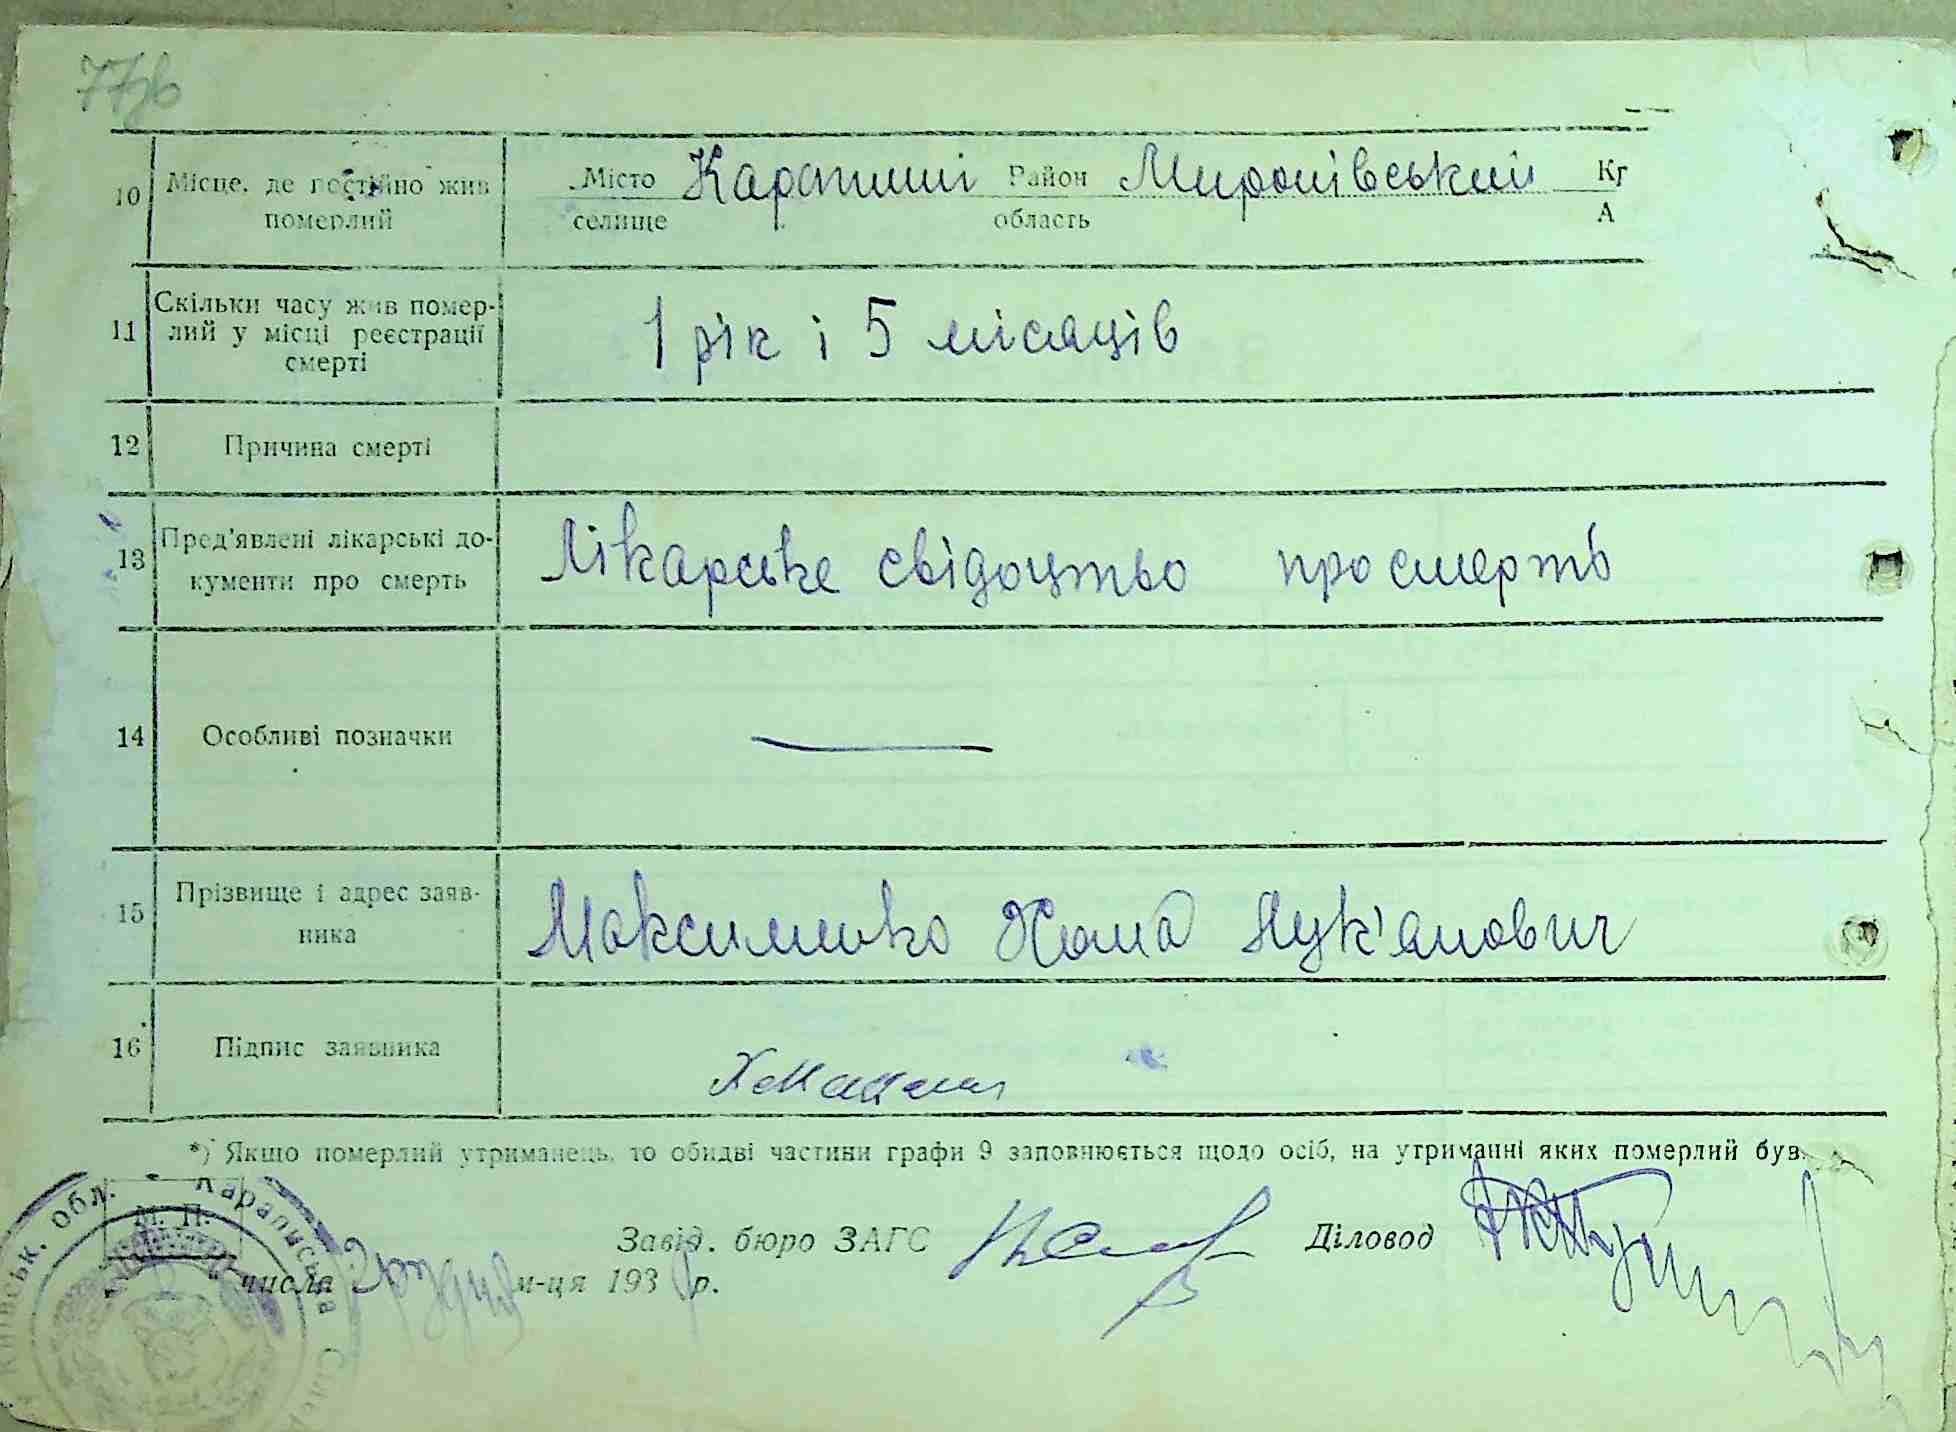 77зв
10 Місце, де постійно жив померлий
Місто Карапиши Район Миронівський Кг
селище область А
11 Скільки часу жив помер-
лий у місці реєстрації
смерті
1 рік і 5 місяців
12 Причина смерті
13 Пред'явлені лікарські до-
кументи про смерть
Лікарське свідоцтво про смерть
14 Особливі позначки
15 Прізвище і адрес заяв-
ника
Максименко Хома Лук'янович
16 Підпис заявника
*) Якщо померлий утриманець, то обидві частини графи 9 заповнюється щодо осіб, на утриманні яких померлий був.
М. П.
Завід. бюро ЗАГС Діловод
числа грудня м-ця 193 р.
обл. Караписька